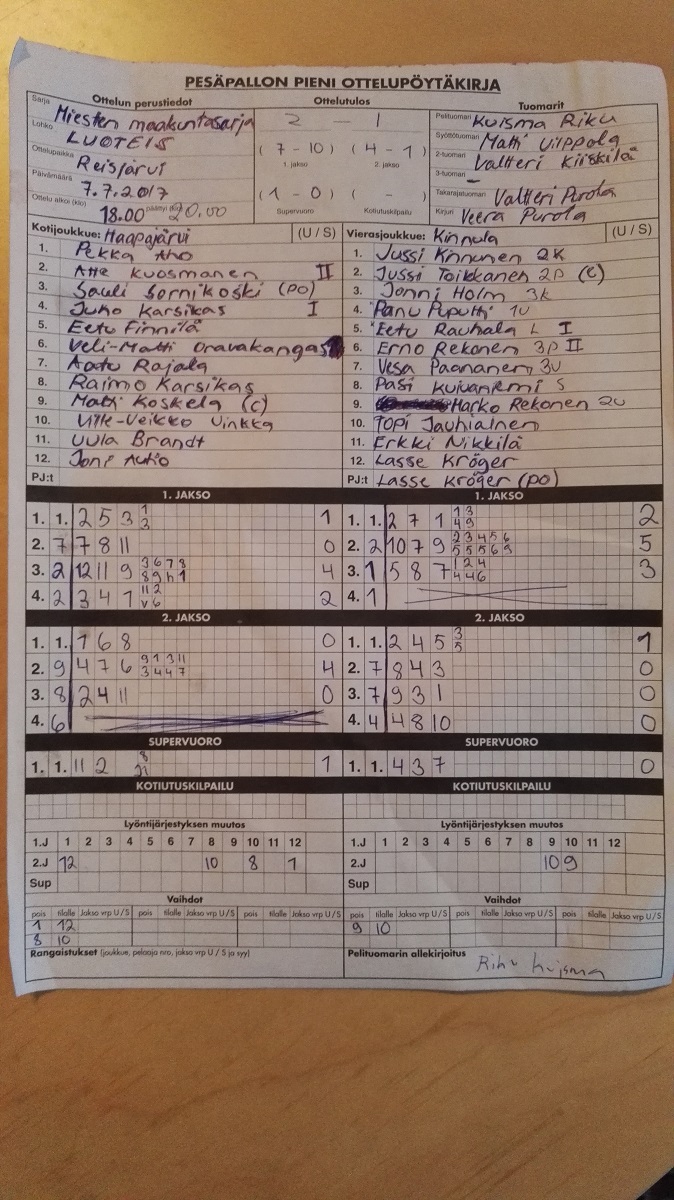 PESÄPALLON PIENI OTTELUPÖYTÄKIRJA
Ottelun perustiedot Ottelutulos Tuomarit
Sarja Miesten maakuntasarja 2 - 1 Pelituomari Kuisma Riku
Lohko LUOTEIS (7 - 10) (4 - 1) Syöttötuomari Matti Vilppola
Ottelupaikka Reisjärvi 1. jakso 2. jakso 2-tuomari Valtteri Kiiskilä
Päivämäärä 7.7.2017 (1 - 0) ( - ) 3-tuomari -
Takarajatuomari Valtteri Purola
Ottelu alkoi (klo) 18.00 päättyi (klo) 20.00 Supervuoro Kotiutuskilpailu Kirjuri Veera Purola
Kotijoukkue: Haapajärvi (U / S) Vierasjoukkue: Kinnula (U / S)
1. Pekka Aho 1. Jussi Kinnunen 2K
2. Atte Kuosmanen II 2. Jussi Toikkanen 2P (c)
3. Sauli Sornikoski (po) 3. Jonni Holm 3k
4. Juho Karsikas I 4. Panu Puputti 1U
5. Eetu Finnilä 5. Eetu Rauhala L I
6. Veli-Matti Oravakangas 6. Erno Rekonen 3P II
7. Aatu Rajala 7. Vesa Paananen 3U
8. Raimo Karsikas 8. Pasi Kuivaniemi S
9. Matti Koskela (c) 9. Marko Rekonen 2U
10. Ville-Veikko Vinkka 10. Topi Jauhiainen
11. Uula Brandt 11. Erkki Nikkilä
12. Joni Autio 12. Lasse Kröger
PJ:t PJ:t Lasse Kröger (po)
1. JAKSO 1. JAKSO
1. 1. 2 5 3 1 1. 1. 2 7 1 1 3 2
3 4 9
2. 7 7 8 11 0 2. 2 10 7 9 2 3 4 5 6 5
5 5 5 6 9
3. 2 12 11 9 3 6 7 8 4 3. 1 5 8 7 1 2 4 3
8 9 h 1 4 4 6
4. 2 3 4 1 11 2 2 4. 1
v 6
2. JAKSO 2. JAKSO
1. 1. 1 6 8 0 1. 1. 2 4 5 3 1
5
2. 9 4 7 6 9 1 3 11 4 2. 7 8 4 3 0
3 4 4 7
3. 8 2 4 11 0 3. 7 9 3 1 0
4. 6 4. 4 4 8 10 0
SUPERVUORO SUPERVUORO
1. 1. 11 2 8 1 1. 1. 4 3 7 0
KOTIUTUSKILPAILU KOTIUTUSKILPAILU
Lyöntijärjestyksen muutos Lyöntijärjestyksen muutos
1.J 1 2 3 4 5 6 7 8 9 10 11 12 1.J 1 2 3 4 5 6 7 8 9 10 11 12
2.J 12 10 8 1 2.J 10 9
Sup Sup
Vaihdot Vaihdot
pois tilalle Jakso vrp U / S pois tilalle Jakso vrp U / S pois tilalle Jakso vrp U / S pois tilalle Jakso vrp U / S pois tilalle Jakso vrp U / S pois tilalle Jakso vrp U / S
1 12 9 10
8 10
Rangaistukset (joukkue, pelaaja nro, jakso vrp U / S ja syy) Pelituomarin allekirjoitus Riku Kuisma